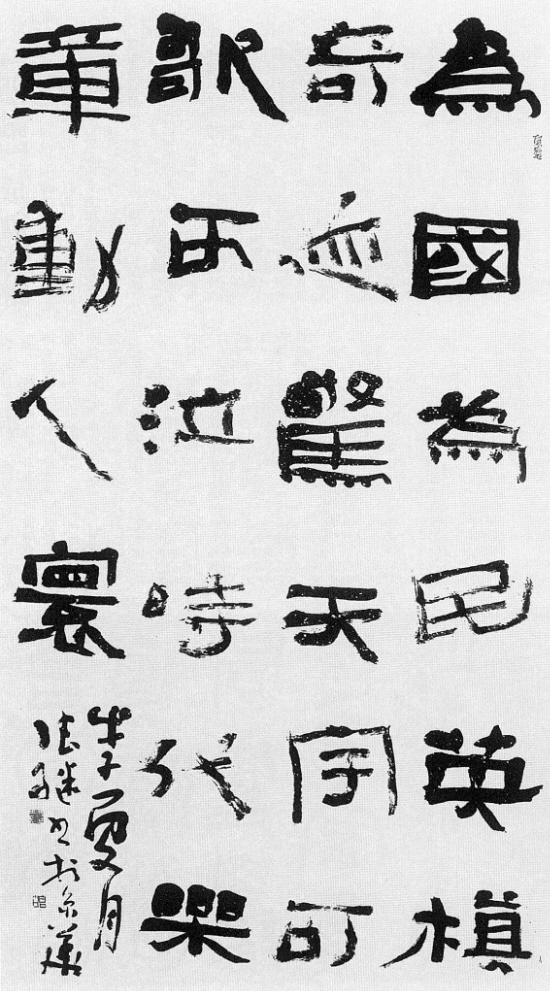 為國為民英模
奇迹驚天宇可
歌可泣時代樂
章動人寰
戊子夏月
張繼書於京華